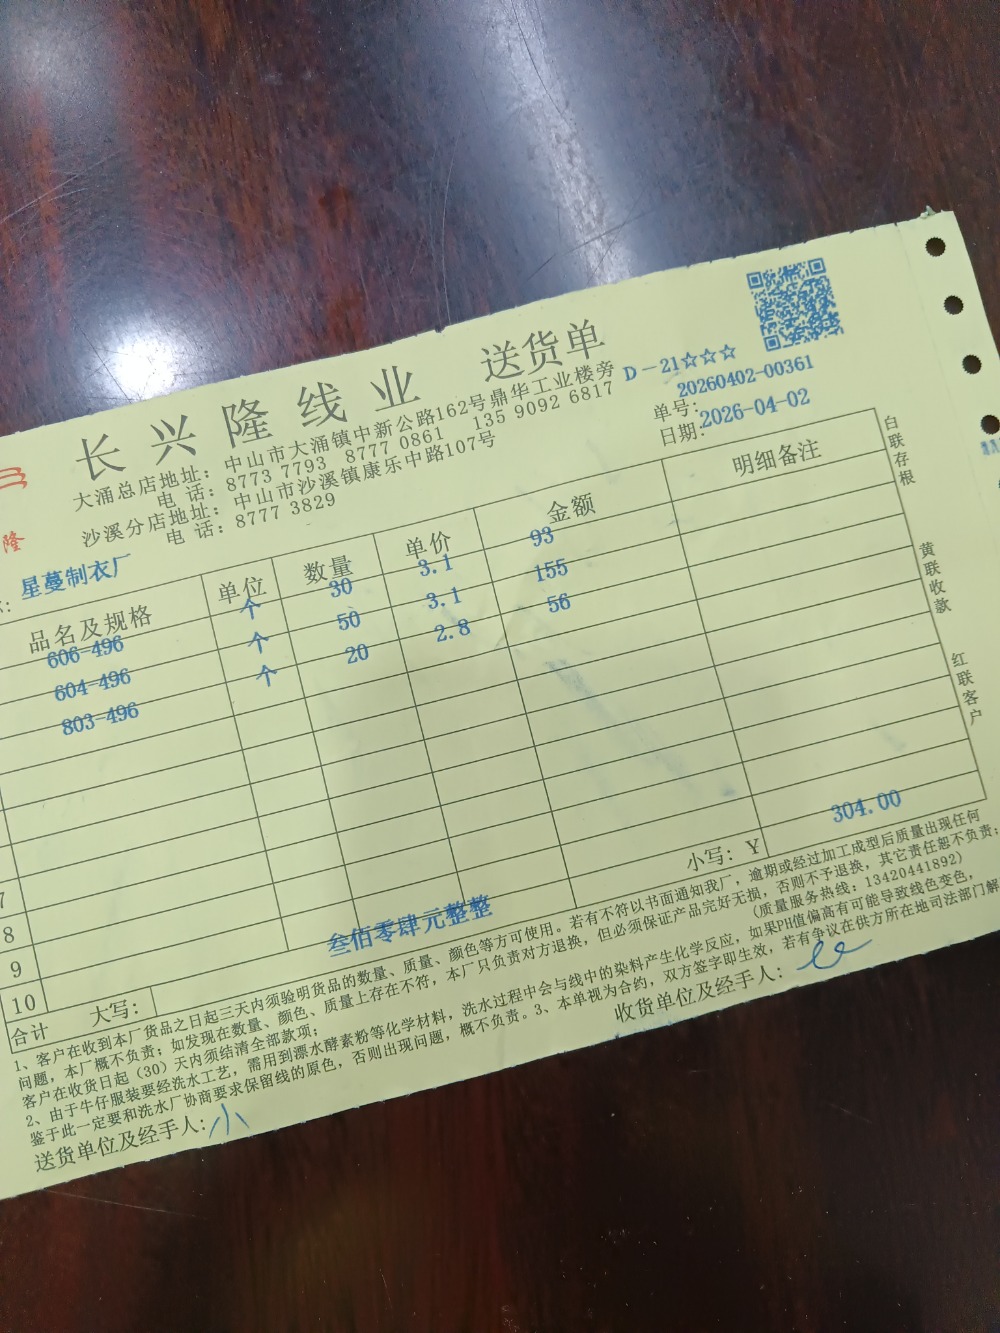 长兴隆线业 送货单
大涌总店地址：中山市大涌镇中新公路162号鼎华工业楼旁
电 话：8773 7793 8777 0861 135 9092 6817
沙溪分店地址：中山市沙溪镇康乐中路107号
电 话：8777 3829
D－21☆☆☆
单号：20260402-00361
日期：2026-04-02
隆
星蔓制衣厂
品名及规格 单位 数量 单价 金额 明细备注
606-496 个 30 3.1 93
604-496 个 50 3.1 155
803-496 个 20 2.8 56
7
8
9
10
合计 大写：叁佰零肆元整整 小写：Y 304.00
白联存根
黄联收款
红联客户
1、客户在收到本厂货品之日起三天内须验明货品的数量、质量、颜色等方可使用。若有不符以书面通知我厂，逾期或经过加工成型后质量出现任何
问题，本厂概不负责；如发现在数量、颜色、质量上存在不符，本厂只负责对方退换，但必须保证产品完好无损，否则不予退换，其它责任恕不负责；
客户在收货日起（30）天内须结清全部款项； （质量服务热线：13420441892）
2、由于牛仔服装要经洗水工艺，需用到漂水酵素粉等化学材料，洗水过程中会与线中的染料产生化学反应，如果PH值偏高有可能导致线色变色，
鉴于此一定要和洗水厂协商要求保留线的原色，否则出现问题，概不负责。3、本单视为合约，双方签字即生效，若有争议在供方所在地司法部门解
送货单位及经手人：小 收货单位及经手人：